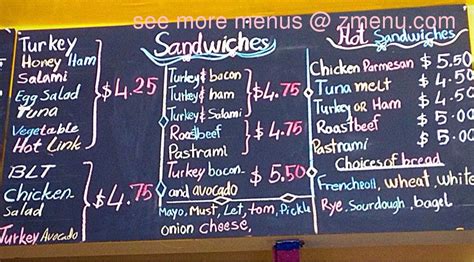 see more menus @ zmenu.com
Turkey
Honey Ham
Salami
Egg Salad
Tuna
Vegetable
Hot Link
$4.25
BLT
Chicken
Salad
Turkey Avocado
$4.75
Sandwiches
Turkey & bacon
Turkey & ham
Turkey & Salami
$4.75
Roastbeef
Pastrami
$4.75
Turkey bacon
and avocado
$5.50
Mayo, Must, Let, tom, Pickle
onion cheese,
Hot Sandwiches
Chicken Parmesan $5.50
Tuna melt $4.50
Turkey or Ham $4.50
Roastbeef $5.00
Pastrami $5.00
Choices of bread
Frenchroll, wheat, white
Rye, Sourdough, bagel